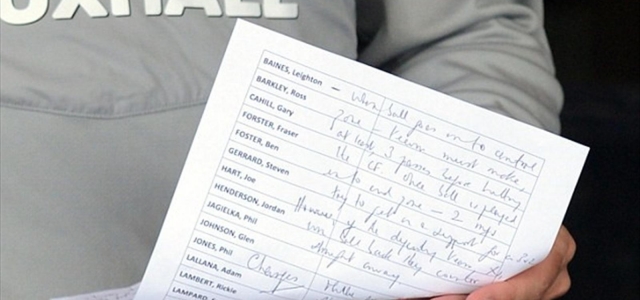 VAUXHALL
BAINES, Leighton
BARKLEY, Ross
CAHILL, Gary
FORSTER, Fraser
FOSTER, Ben
GERRARD, Steven
HART, Joe
HENDERSON, Jordan
JAGIELKA, Phil
JOHNSON, Glen
JONES, Phil
LALLANA, Adam
LAMBERT, Rickie
LAMPARD,
– When ball goes into central
zone – team must make
at least 3 passes before
the CF. Once ball is played
into end zone – 2
try to get in a support for a
However if the defending team
win ball back they counter
straight away